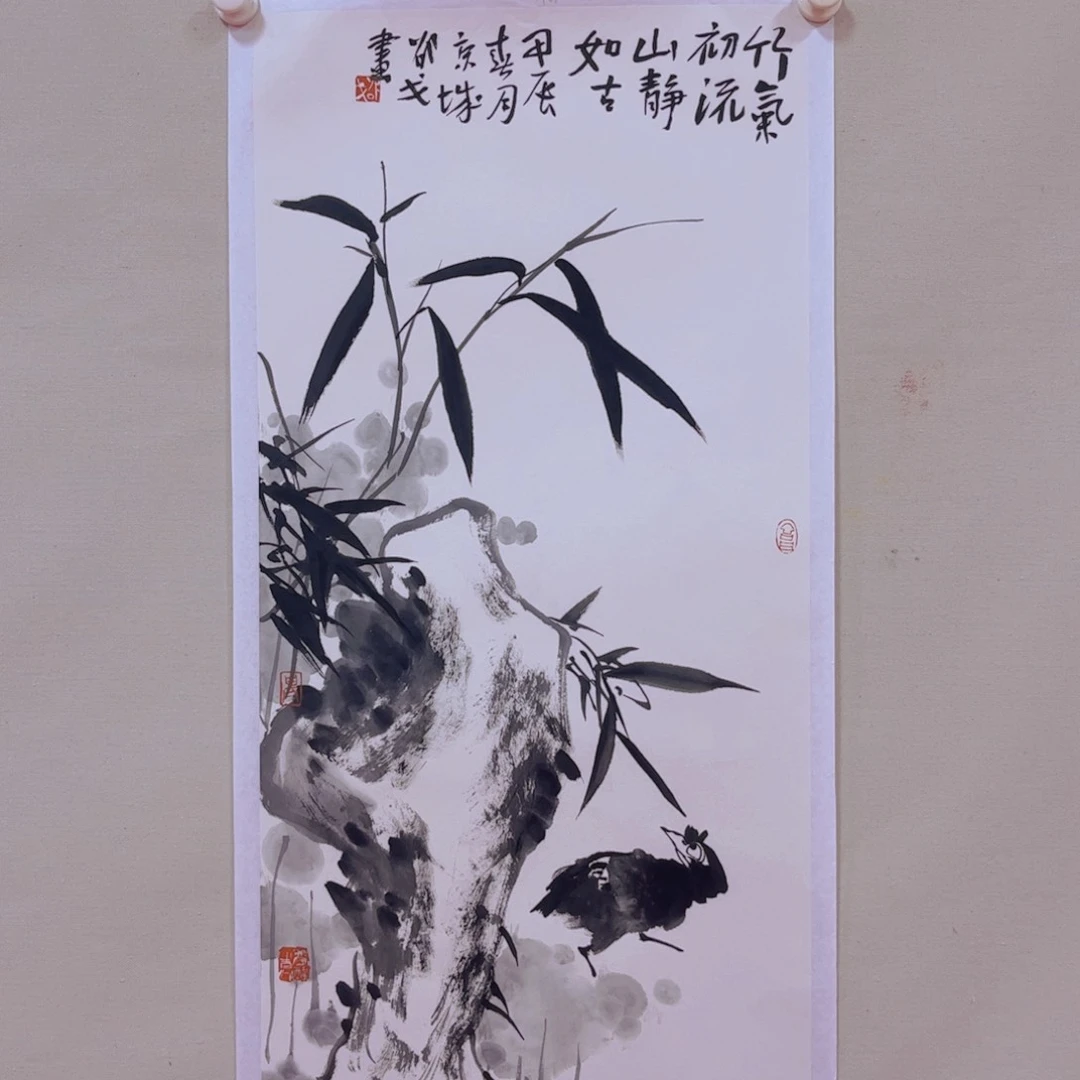 竹氣
初流
山靜
如古
甲辰
春月
京城
戈
畫